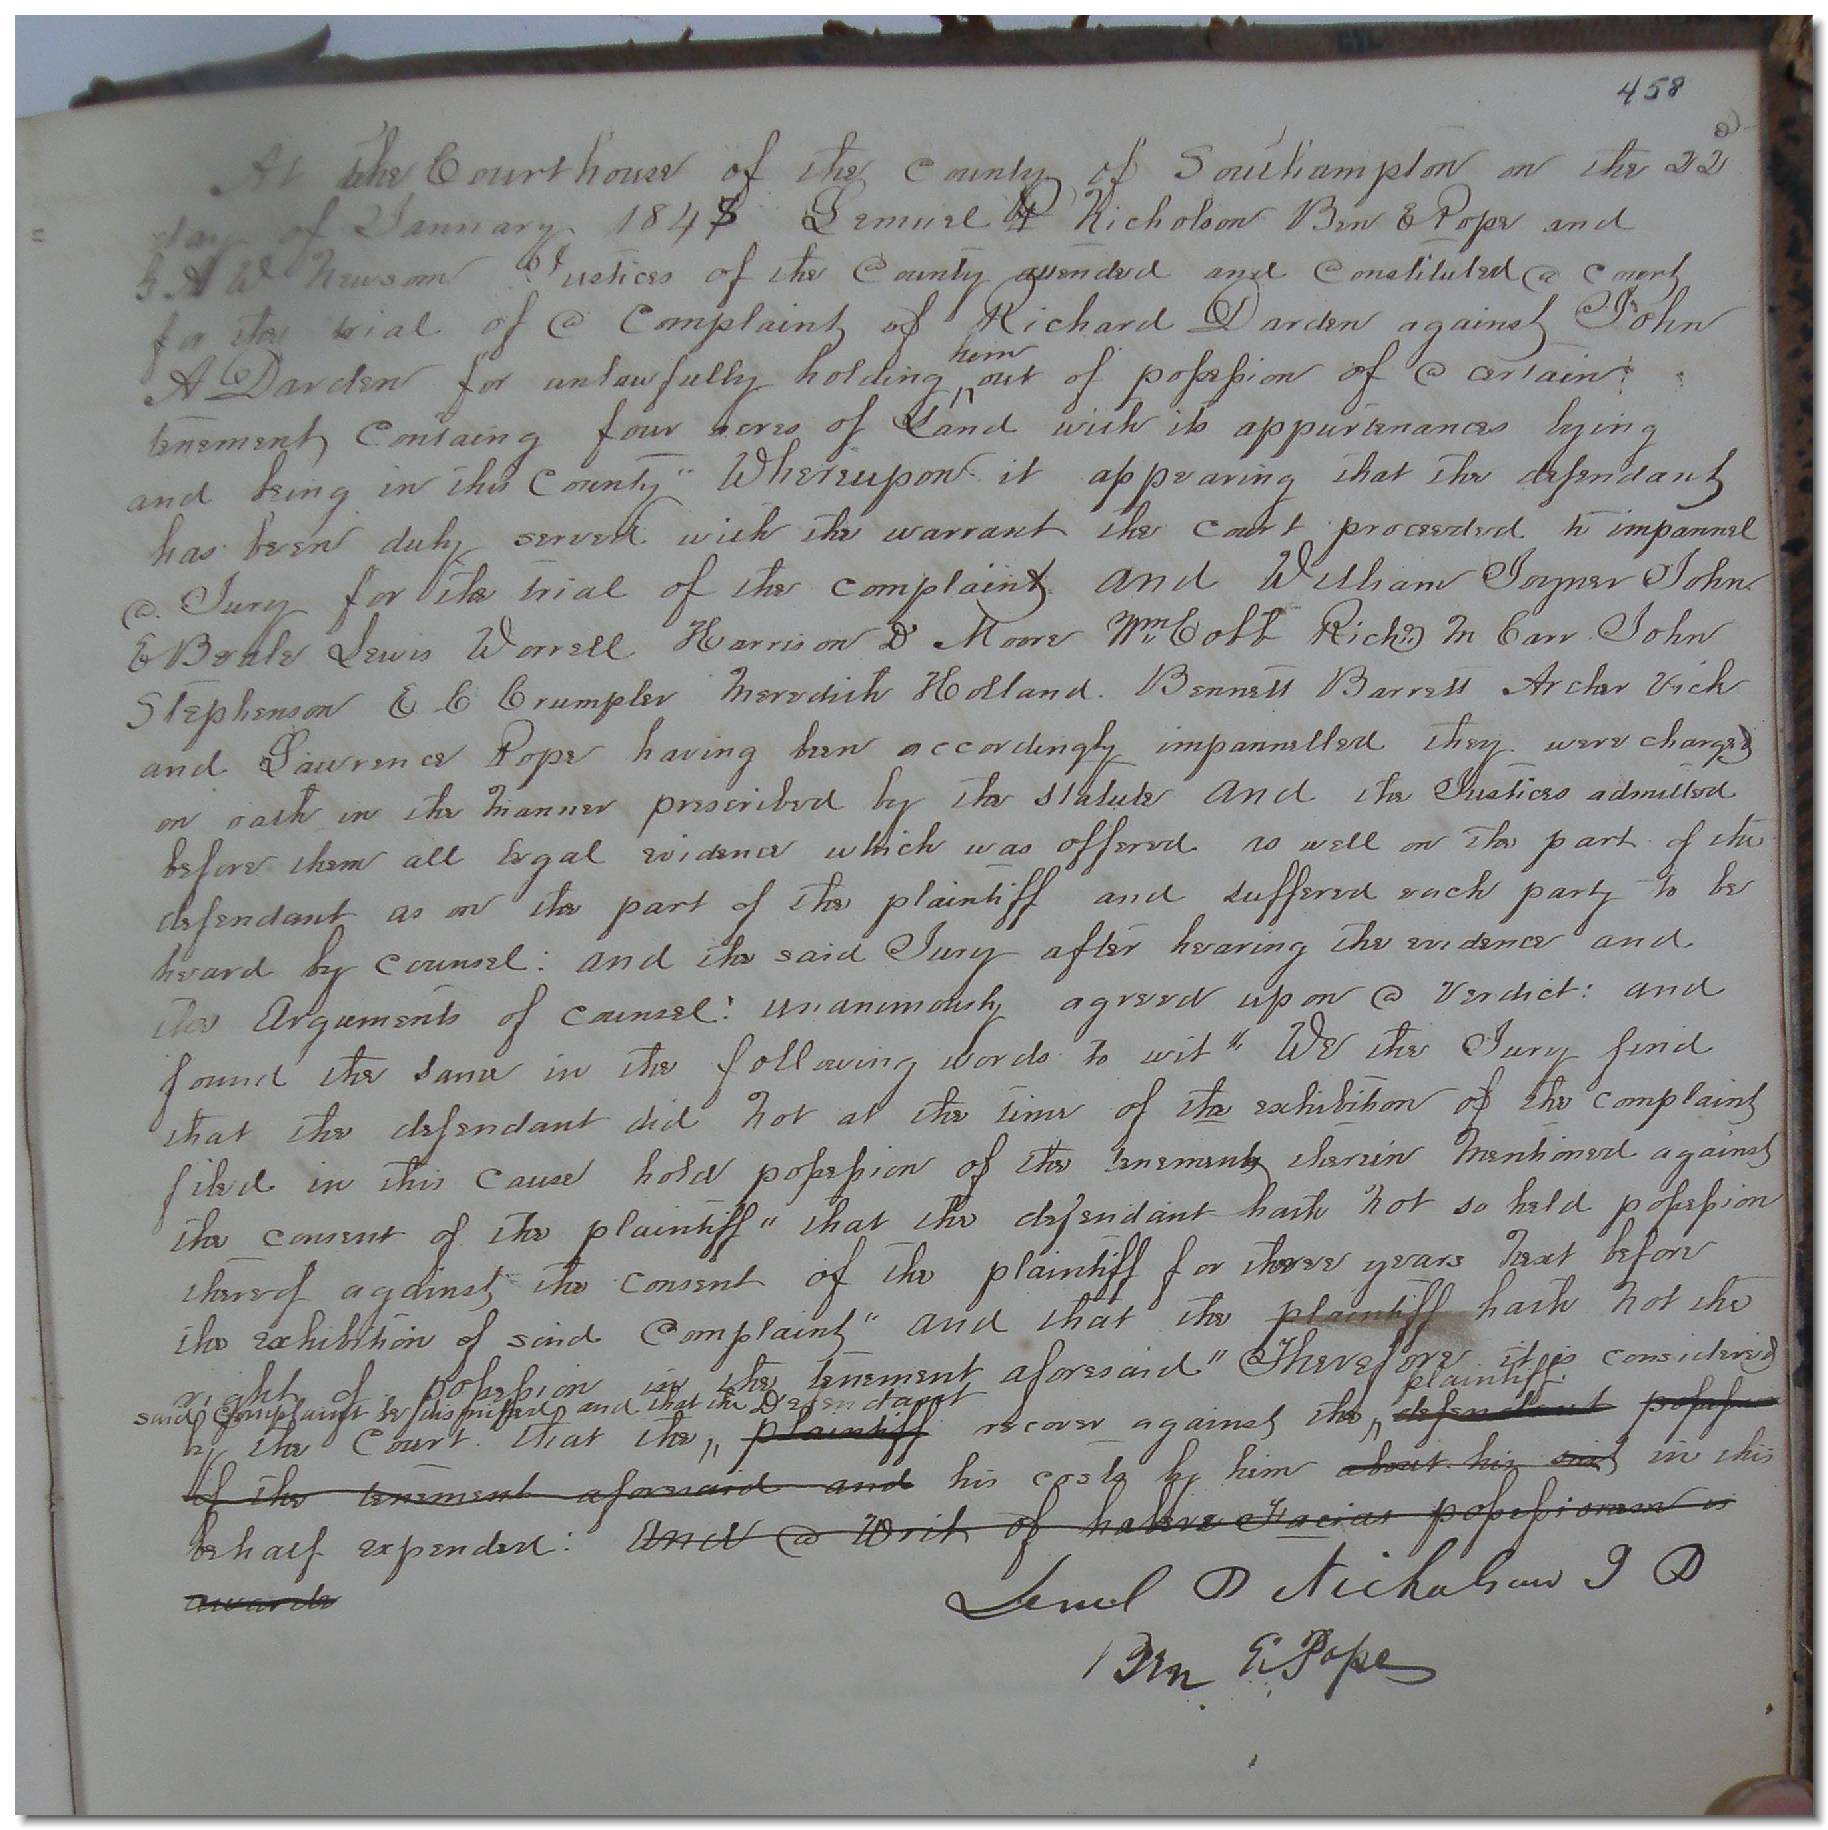 458
At the Courthouse of the County of Southampton on the 22d
day of January 1848 Lemuel Nicholson Ben E Pope and
A W Newsom Justices of the County attended and Constituted a Court
for the trial of a Complaint of Richard Darden against John
A Darden for unlawfully holding him out of possession of a certain
tenement Containg four acres of Land with its appurtenances lying
and being in this County" Whereupon it appearing that the defendant
has been duly served with the warrant the court proceeded to impannel
a Jury for the trial of the complaint and William Joyner John
E Beale Lewis Worrell Harrison D Moore Wm Cobb Richd M Carr John
Stephenson E C Crumpler Meredith Holland. Bennett Barrett Archer Vick
and Lawrence Pope having been accordingly impannelled they were charged
on oath in the Manner prescribed by the Statute and the Justices admitted
before them all legal evidence which was offered as well on the part of the
defendant as on the part of the plaintiff and suffered each party to be
heard by Counsel: and the said Jury after hearing the evidence and
the Arguments of Counsel: unanimously agreed upon a Verdict: and
found the same in the following words to wit" We the Jury find
that the defendant did not at the time of the exhibition of the complaint
filed in this Cause hold possession of the tenement therein Mentioned against
the consent of the plaintiff" that the defendant hath not so held possession
thereof against the consent of the plaintiff for three years Next before
the exhibition of said Complaint" and that the plaintiff hath not the
right of possession in the tenement aforesaid" Therefore it is considered
said Complaint be dismissed and that the Defendant plaintiff
by the Court that the plaintiff recover against the defendant possession
of the tenement aforesaid and his costs by him about his suit in this
behalf expended: And a Writ of habere Facias possessionem is
awarded
Lemul D Nicholson J P
Ben E Pope